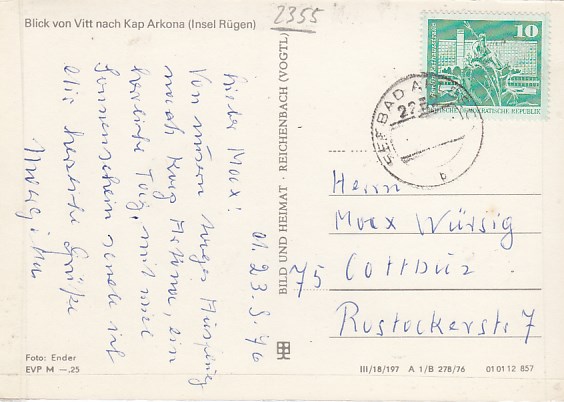 Blick von Vitt nach Kap Arkona (Insel Rügen)
2355
Lieber Max!
d. 23. 5. 76
Von unserem
nach Kap Arkona, ein
herrlicher Tag, mit viel
Sonnenschein sende ich
Dir herzliche Grüße
Foto: Ender
EVP M —,25
BILD UND HEIMAT · REICHENBACH (VOGTL)
10
DEUTSCHE DEMOKRATISCHE REPUBLIK
SEEBAD
b
Herrn
Max Würsig
75 Cottbus
Rostockerstr 7
III/18/197 A 1/B 278/76 01 01 12 857